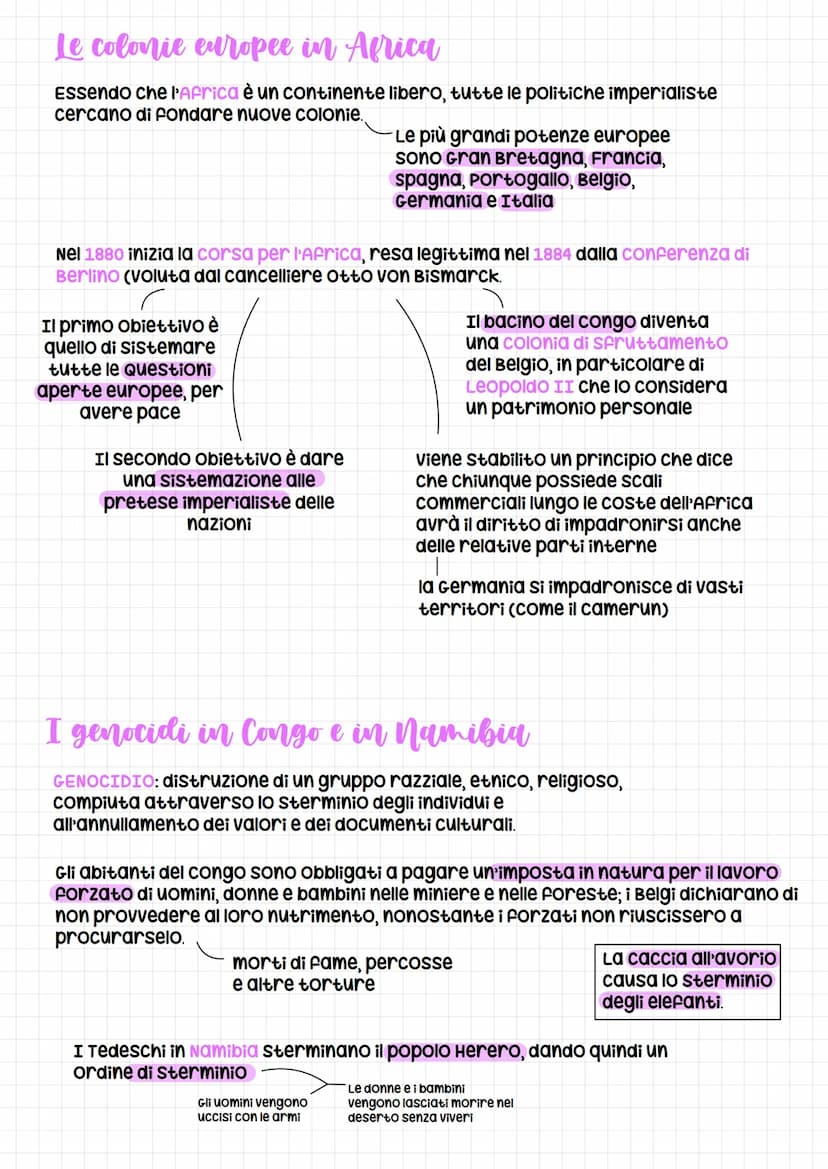 Le colonie europee in Africa
Essendo che l'Africa è un continente libero, tutte le politiche imperialiste
cercano di fondare nuove colonie.
Le più grandi potenze europee
sono Gran Bretagna, Francia,
Spagna, Portogallo, Belgio,
Germania e Italia
Nel 1880 inizia la corsa per l'Africa, resa legittima nel 1884 dalla conferenza di
Berlino (voluta dal cancelliere Otto von Bismarck.
Il primo obiettivo è
quello di sistemare
tutte le questioni
aperte europee, per
avere pace
Il bacino del Congo diventa
una colonia di sfruttamento
del Belgio, in particolare di
Leopoldo II che lo considera
un patrimonio personale
Il secondo obiettivo è dare
una sistemazione alle
pretese imperialiste delle
nazioni
Viene stabilito un principio che dice
che chiunque possiede scali
commerciali lungo le coste dell'Africa
avrà il diritto di impadronirsi anche
delle relative parti interne
la Germania si impadronisce di vasti
territori (come il Camerun)
I genocidi in Congo e in Namibia
GENOCIDIO: distruzione di un gruppo razziale, etnico, religioso,
compiuta attraverso lo sterminio degli individui e
all'annullamento dei valori e dei documenti culturali.
Gli abitanti del Congo sono obbligati a pagare un'imposta in natura per il lavoro
forzato di uomini, donne e bambini nelle miniere e nelle foreste; i Belgi dichiarano di
non provvedere al loro nutrimento, nonostante i forzati non riuscissero a
procurarselo.
morti di fame, percosse
e altre torture
La caccia all'avorio
causa lo sterminio
degli elefanti.
I Tedeschi in Namibia sterminano il popolo Herero, dando quindi un
ordine di sterminio
Gli uomini vengono
uccisi con le armi
Le donne e i bambini
vengono lasciati morire nel
deserto senza viveri